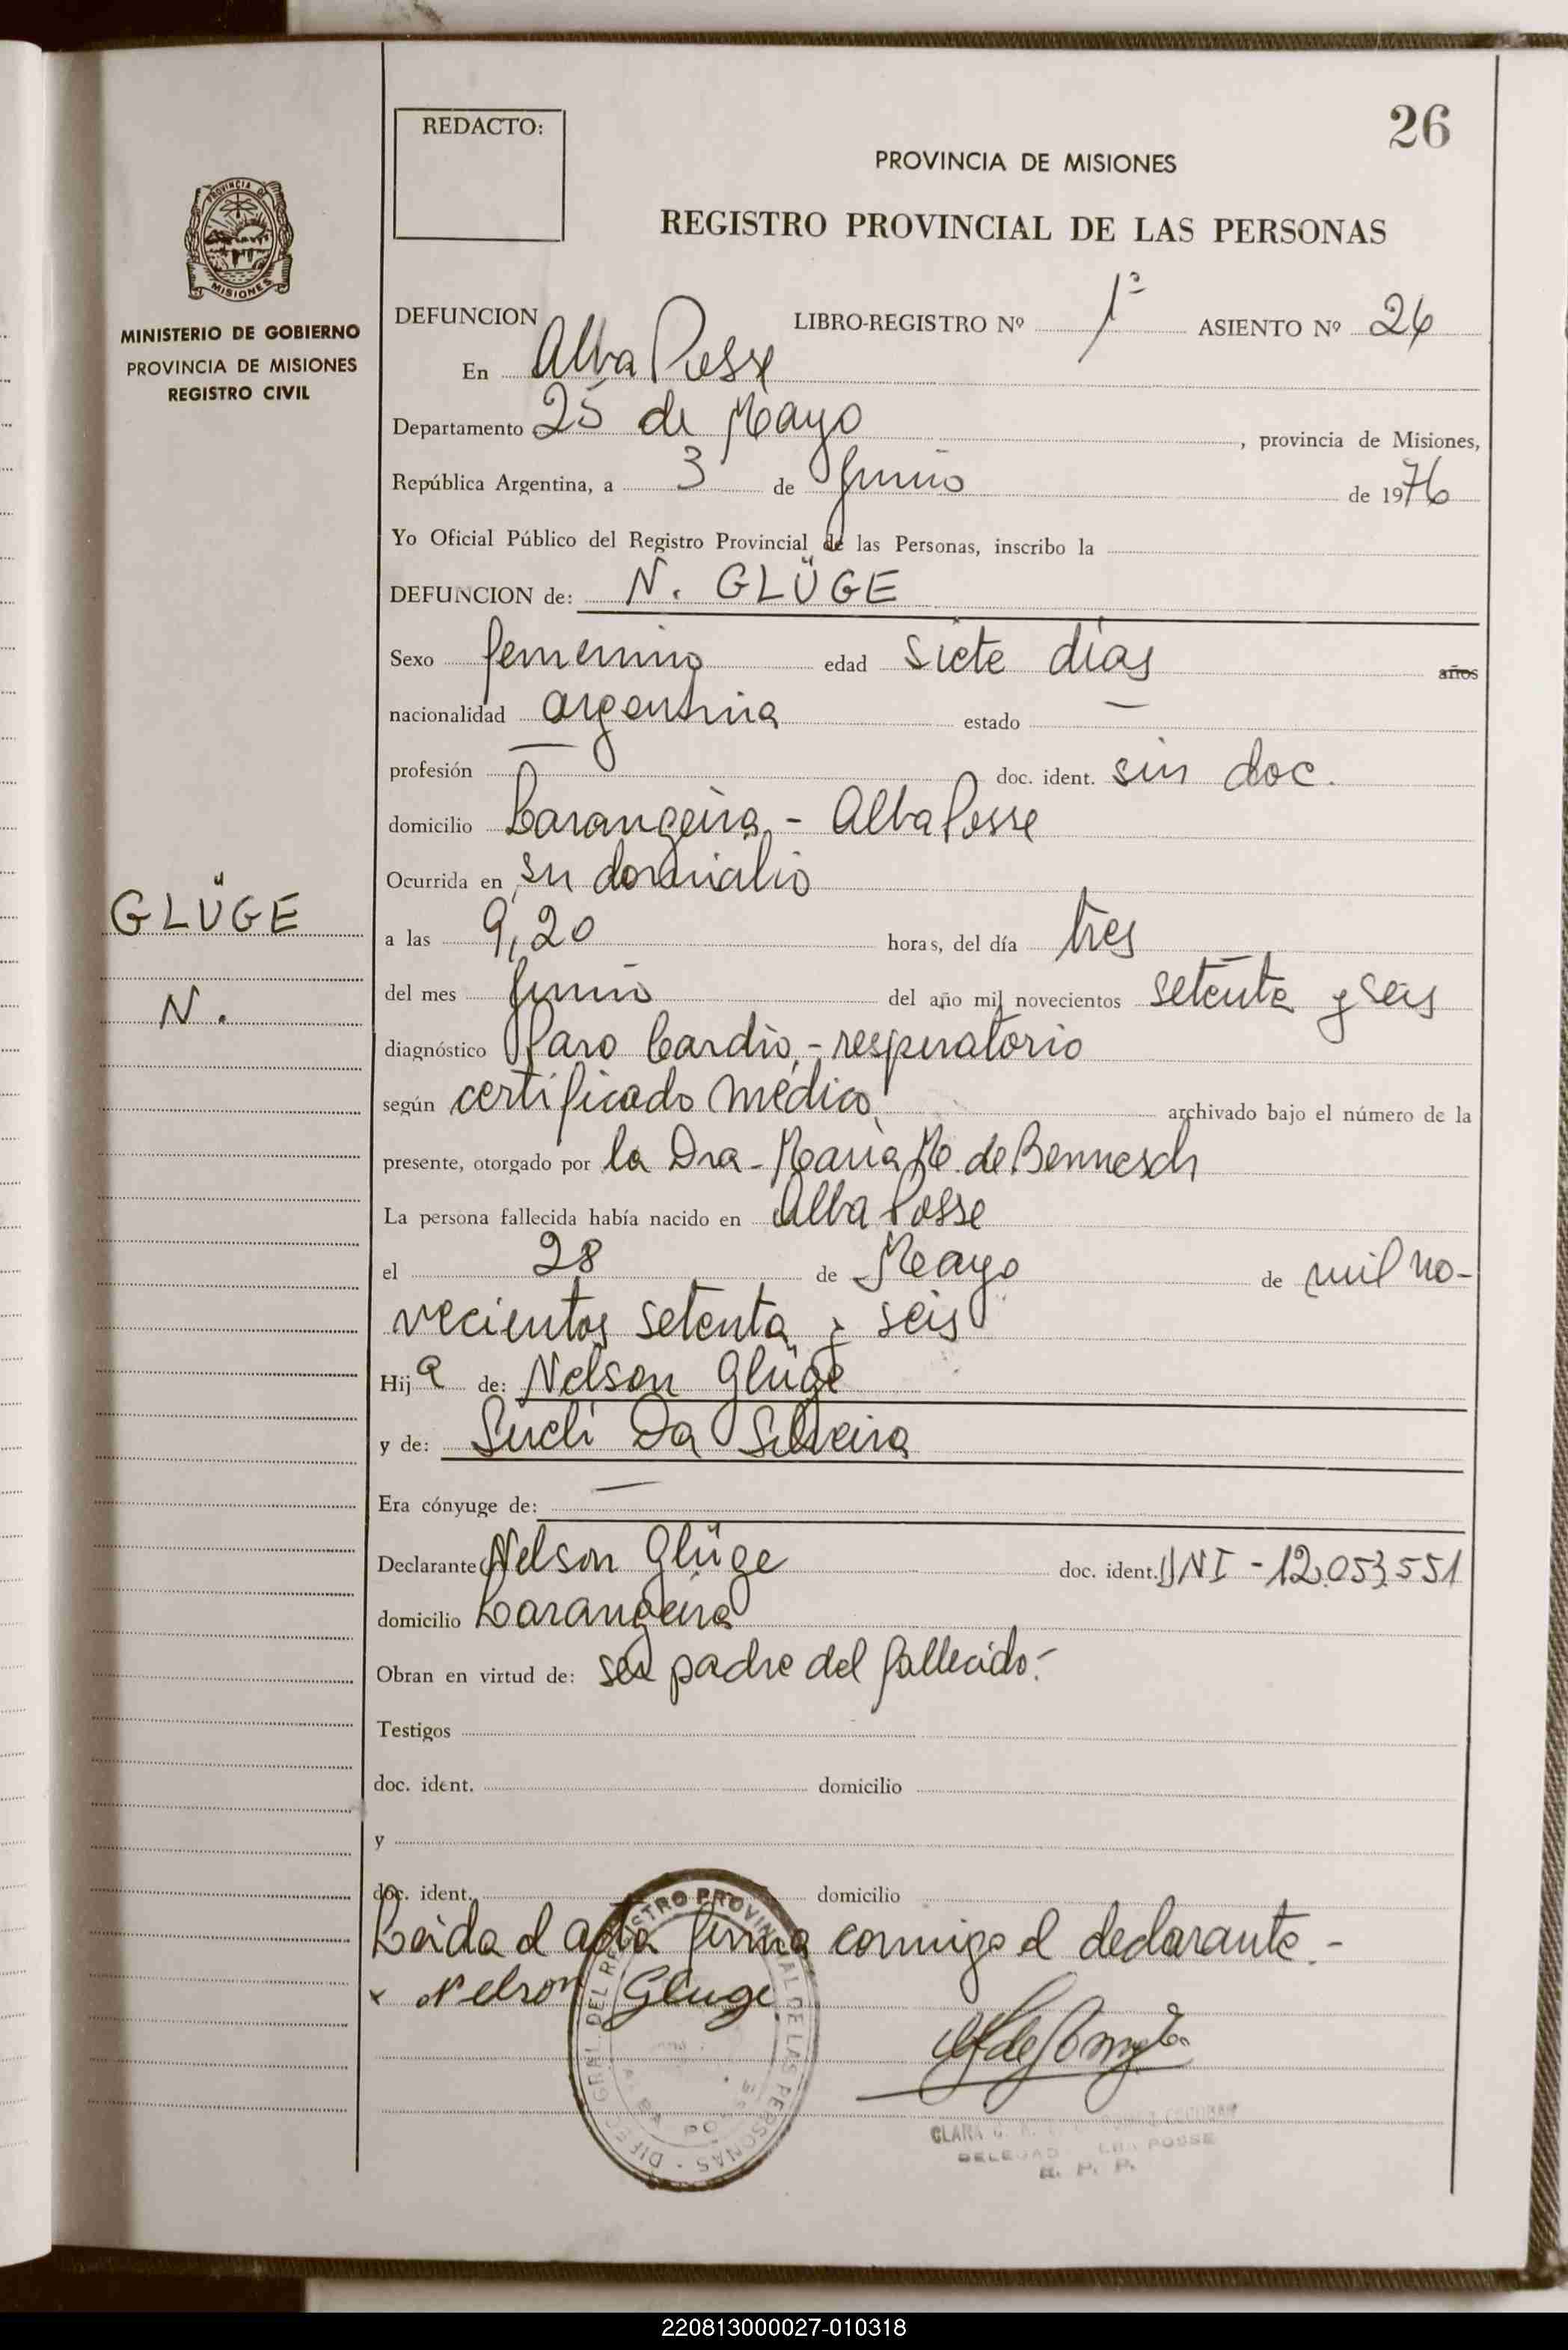 26
REDACTO:
PROVINCIA DE MISIONES
REGISTRO PROVINCIAL DE LAS PERSONAS
PROVINCIA DE
MISIONES
MINISTERIO DE GOBIERNO
PROVINCIA DE MISIONES
REGISTRO CIVIL
DEFUNCION LIBRO-REGISTRO Nº 1º ASIENTO Nº 26
En Alba Posse
Departamento 25 de Mayo, provincia de Misiones,
República Argentina, a 3 de Junio de 1976
Yo Oficial Público del Registro Provincial de las Personas, inscribo la
DEFUNCION de: N. GLÜGE
Sexo femenino edad siete días años
nacionalidad argentina estado —
profesión — doc. ident. sin doc.
domicilio Larangeira - Alba Posse
Ocurrida en su domicilio
GLÜGE
N.
a las 9,20 horas, del día tres
del mes Junio del año mil novecientos setenta y seis
diagnóstico Paro Cardio-respiratorio
según certificado médico archivado bajo el número de la
presente, otorgado por la Dra. María M. de Bennesch
La persona fallecida había nacido en Alba Posse
el 28 de Mayo de mil no-
vecientos setenta y seis
Hija de: Nelson Glüge
y de: Sucli Da Silveira
Era cónyuge de: —
Declarante Nelson Glüge doc. ident. DNI - 12.053.551
domicilio Larangeira
Obran en virtud de: ser padre del fallecido.-
Testigos
doc. ident. domicilio
y
doc. ident. domicilio
Leida el acta firma conmigo el declarante -
x Nelson Gluge
DIREC. GRAL. DEL REGISTRO PROVINCIAL DE LAS PERSONAS -
ALBA POSSE
CLARA
POSSE
R. P. P.
220813000027-010318